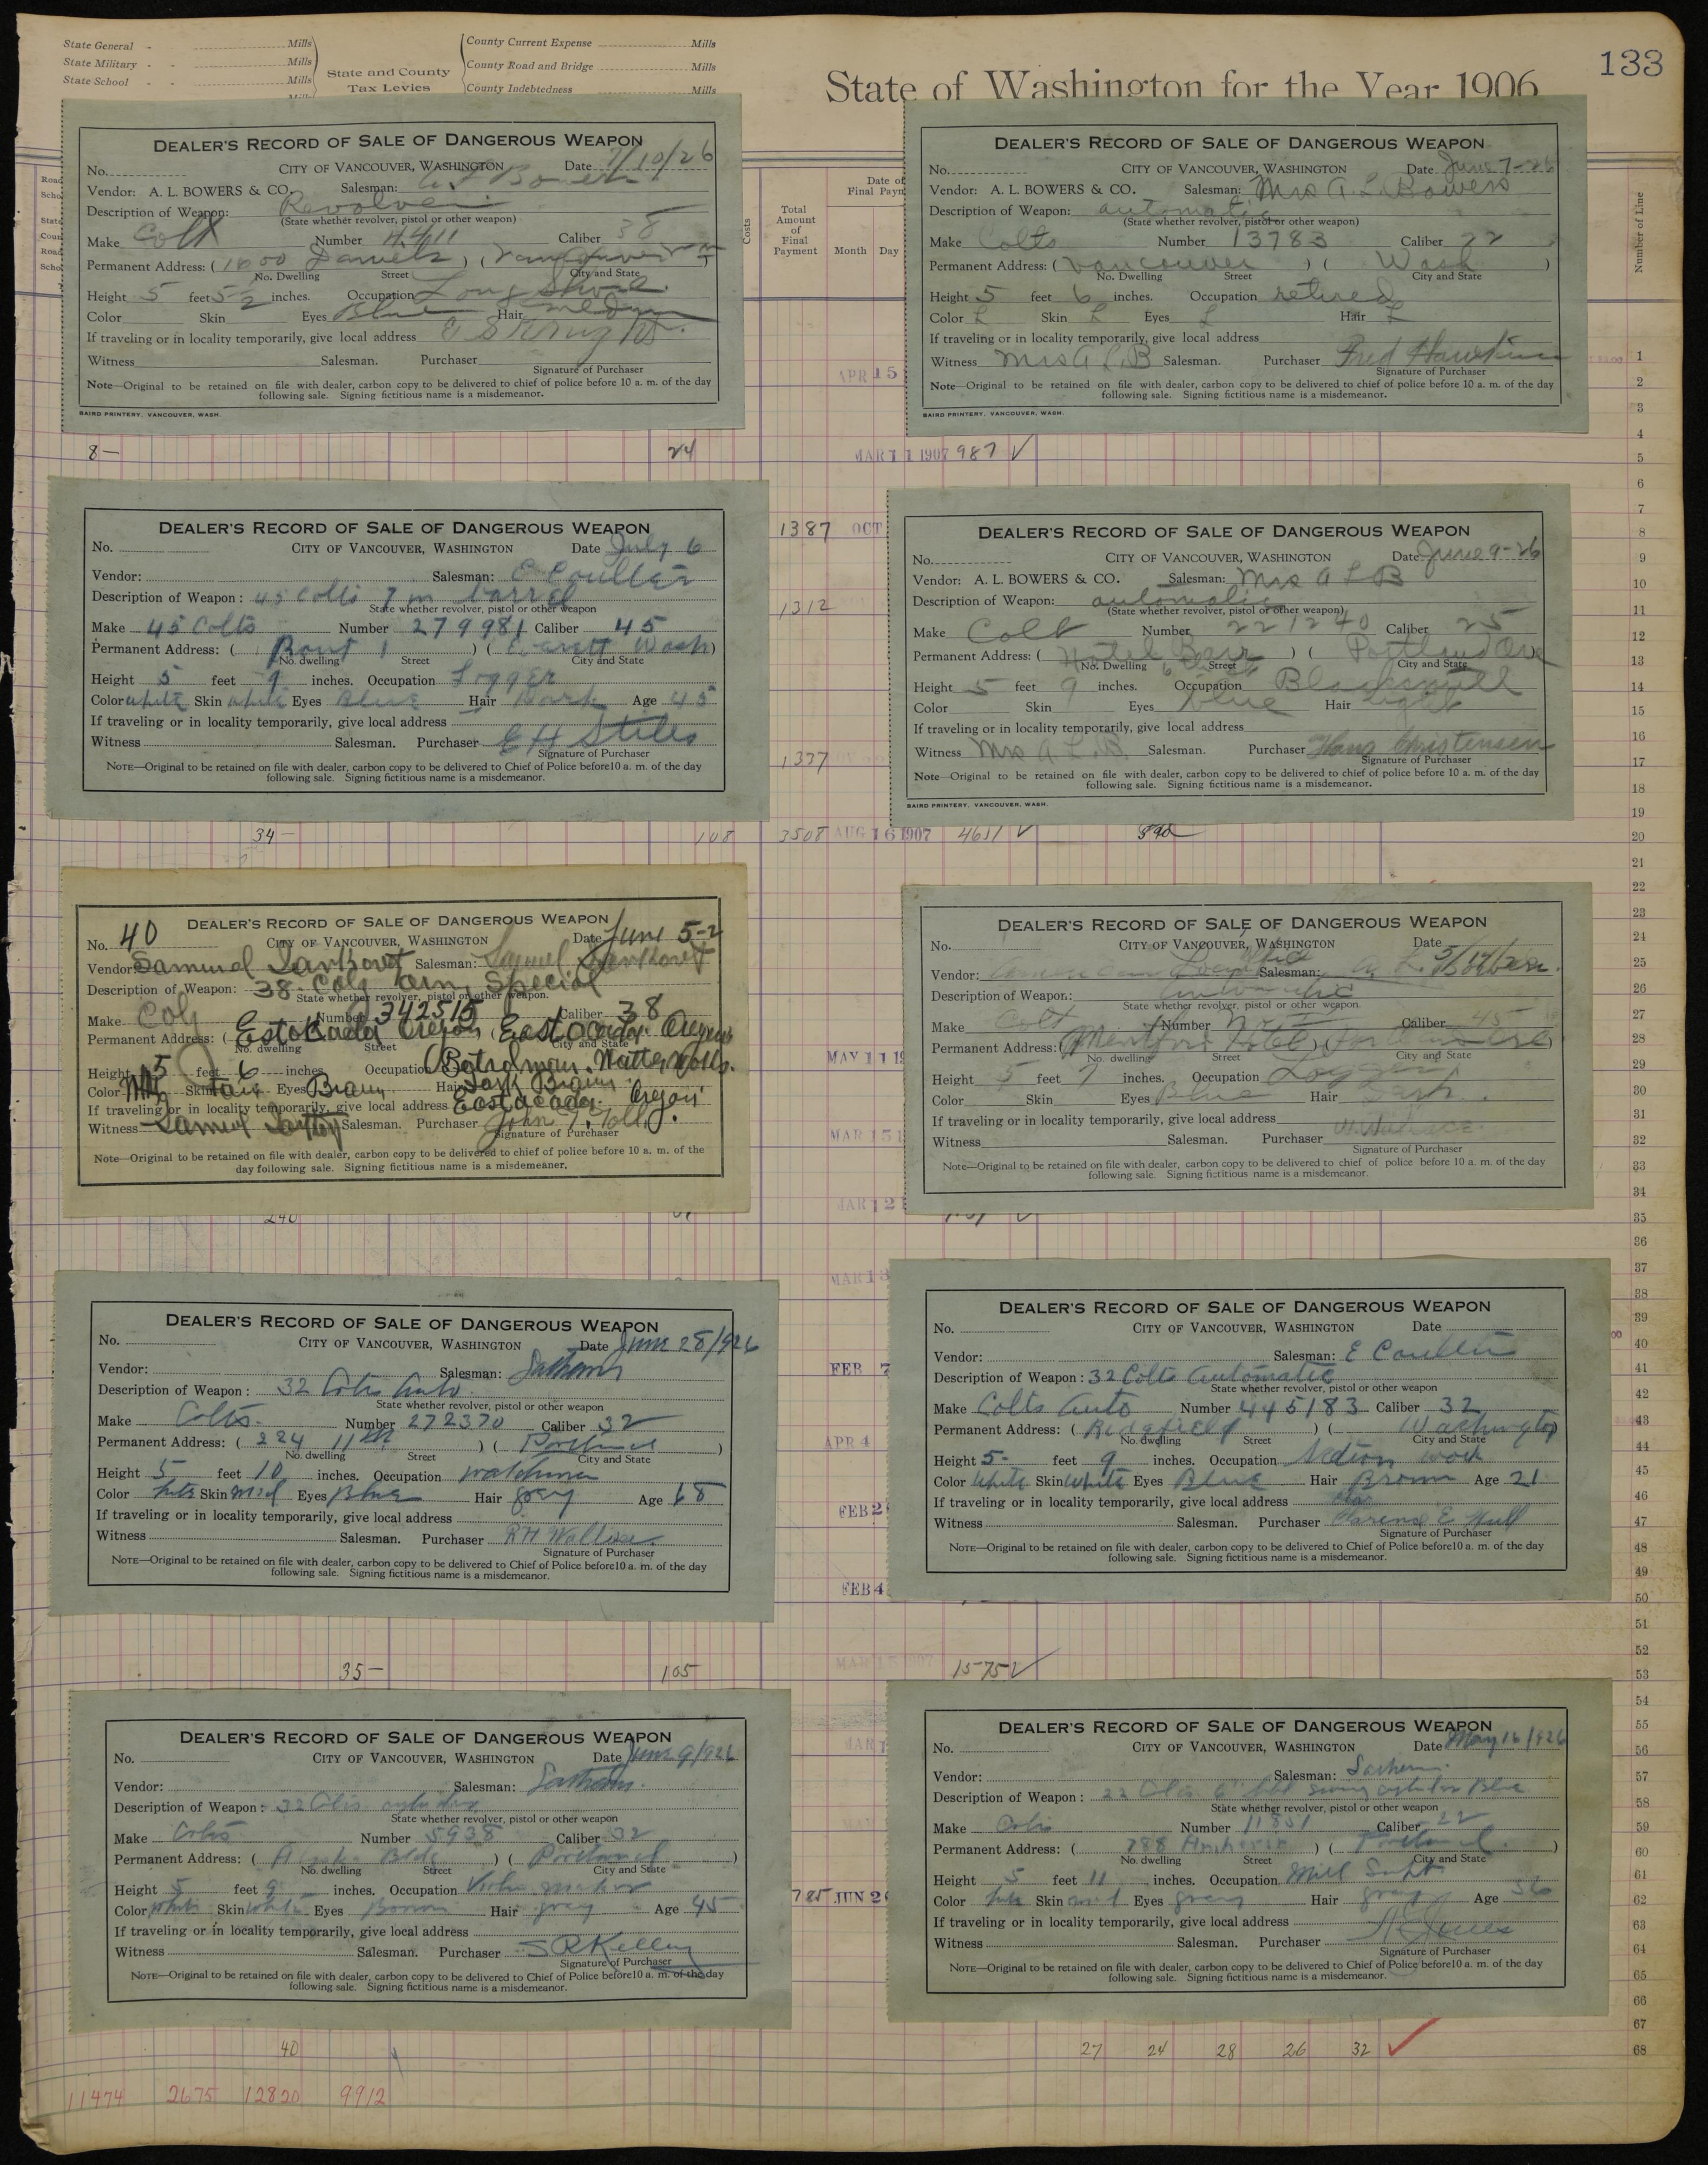 133
State General - Mills
State Military - - Mills
State School - - Mills
State and County
Tax Levies
County Current Expense Mills
County Road and Bridge Mills
County Indebtedness Mills
State of Washington for the Year 1906
Costs
Total
Amount
of
Final
Payment
Date of
Final Paym
Month Day
Number of Line
DEALER'S RECORD OF SALE OF DANGEROUS WEAPON
No. CITY OF VANCOUVER, WASHINGTON Date 7/10/26
Vendor: A. L. BOWERS & CO. Salesman: A L Bowers
Description of Weapon: Revolver
(State whether revolver, pistol or other weapon)
Make Colt Number 4411 Caliber 38
Permanent Address: (1600 Daniels) (Vancouver
No. Dwelling Street City and State
Height 5 feet 5 1/2 inches. Occupation Long Shore
Color Skin Eyes Blue Hair
If traveling or in locality temporarily, give local address
Witness Salesman. Purchaser
Signature of Purchaser
Note—Original to be retained on file with dealer, carbon copy to be delivered to chief of police before 10 a. m. of the day
following sale. Signing fictitious name is a misdemeanor.
BAIRD PRINTERY, VANCOUVER, WASH.
DEALER'S RECORD OF SALE OF DANGEROUS WEAPON
No. CITY OF VANCOUVER, WASHINGTON Date June 7-26
Vendor: A. L. BOWERS & CO. Salesman: Mrs A. L. Bowers
Description of Weapon: automatic
(State whether revolver, pistol or other weapon)
Make Colts Number 13783 Caliber 22
Permanent Address: (Vancouver) (Wash)
No. Dwelling Street City and State
Height 5 feet 6 inches. Occupation retired
Color L Skin L Eyes L Hair L
If traveling or in locality temporarily, give local address
Witness Mrs A L B Salesman. Purchaser Fred Hawkins
Signature of Purchaser
Note—Original to be retained on file with dealer, carbon copy to be delivered to chief of police before 10 a. m. of the day
following sale. Signing fictitious name is a misdemeanor.
BAIRD PRINTERY, VANCOUVER, WASH.
APR 15
8— 24 MAR 11 1907 987 ✓
DEALER'S RECORD OF SALE OF DANGEROUS WEAPON
No. CITY OF VANCOUVER, WASHINGTON Date July 6
Vendor: Salesman: E Coulter
Description of Weapon: 45 Colts 7 in barrel
State whether revolver, pistol or other weapon
Make 45 Colts Number 279981 Caliber 45
Permanent Address: (Rout 1) (Everett Wash)
No. dwelling Street City and State
Height 5 feet 9 inches. Occupation Logger
Color white Skin white Eyes Blue Hair Dark Age 45
If traveling or in locality temporarily, give local address
Witness Salesman. Purchaser E H Stiles
Signature of Purchaser
NOTE—Original to be retained on file with dealer, carbon copy to be delivered to Chief of Police before10 a. m. of the day
following sale. Signing fictitious name is a misdemeanor.
1387 OCT
1312
1377
DEALER'S RECORD OF SALE OF DANGEROUS WEAPON
No. CITY OF VANCOUVER, WASHINGTON Date June 9-26
Vendor: A. L. BOWERS & CO. Salesman: Mrs A L B
Description of Weapon: automatic
(State whether revolver, pistol or other weapon)
Make Colt Number 221240 Caliber 25
Permanent Address: (Hotel) (Portland Ore
No. Dwelling Street City and State
Height 5 feet 9 inches. Occupation Blacksmith
Color Skin Eyes blue Hair light
If traveling or in locality temporarily, give local address
Witness Mrs A L B Salesman. Purchaser Hans Christensen
Signature of Purchaser
Note—Original to be retained on file with dealer, carbon copy to be delivered to chief of police before 10 a. m. of the day
following sale. Signing fictitious name is a misdemeanor.
BAIRD PRINTERY, VANCOUVER, WASH.
34— 108 3508 AUG 16 1907 4651 ✓ 390
DEALER'S RECORD OF SALE OF DANGEROUS WEAPON
No. 40 CITY OF VANCOUVER, WASHINGTON Date June 5-2
Vendor Samuel Salesman: Samuel
Description of Weapon: 38 Colt Army Special
State whether revolver, pistol or other weapon.
Make Colt Number 342515 Caliber 38
Permanent Address: (Estacada Oregon (Estacada Oregon
No. dwelling Street City and State
Height 5 feet 6 inches Occupation Patrolman
Color Skin Fair Eyes Brown Hair Dark Brown
If traveling or in locality temporarily, give local address Estacada Oregon
Witness Samuel Salesman. Purchaser John
Signature of Purchaser
Note—Original to be retained on file with dealer, carbon copy to be delivered to chief of police before 10 a. m. of the
day following sale. Signing fictitious name is a misdemeaner,
DEALER'S RECORD OF SALE OF DANGEROUS WEAPON
No. CITY OF VANCOUVER, WASHINGTON Date 5/14/26
Vendor: Salesman: A. L. Bowers.
Description of Weapon: Automatic
State whether revolver, pistol or other weapon.
Make Colt Number Caliber 45
Permanent Address: Hotel
No. dwelling Street City and State
Height 5 feet 7 inches. Occupation Logger
Color Skin Eyes Blue Hair Dark
If traveling or in locality temporarily, give local address
Witness Salesman. Purchaser W. Wallace
Signature of Purchaser
Note—Original to be retained on file with dealer, carbon copy to be delivered to chief of police before 10 a. m. of the day
following sale. Signing fictitious name is a misdemeanor.
MAY 11 19
MAR 15 1
MAR 12
240
MAR 13
FEB 7
APR 4
FEB 2
FEB 4
DEALER'S RECORD OF SALE OF DANGEROUS WEAPON
No. CITY OF VANCOUVER, WASHINGTON Date June 28/926
Vendor: Salesman:
Description of Weapon: 32 Colts Auto.
State whether revolver, pistol or other weapon
Make Colts. Number 272370 Caliber 32
Permanent Address: (224 11th) (Portland)
No. dwelling Street City and State
Height 5 feet 10 inches. Occupation watchman
Color white Skin Med Eyes Blue Hair gray Age 68
If traveling or in locality temporarily, give local address
Witness Salesman. Purchaser R H Wallace.
Signature of Purchaser
NOTE—Original to be retained on file with dealer, carbon copy to be delivered to Chief of Police before10 a. m. of the day
following sale. Signing fictitious name is a misdemeanor.
DEALER'S RECORD OF SALE OF DANGEROUS WEAPON
No. CITY OF VANCOUVER, WASHINGTON Date
Vendor: Salesman: E Coulter
Description of Weapon: 32 Colts Automatic
State whether revolver, pistol or other weapon
Make Colts Auto Number 445183 Caliber 32
Permanent Address: (Ridgefield) (Washington)
No. dwelling Street City and State
Height 5- feet 9 inches. Occupation Section work
Color White Skin White Eyes Blue Hair Brown Age 21
If traveling or in locality temporarily, give local address
Witness Salesman. Purchaser Clarence E Hull
Signature of Purchaser
NOTE—Original to be retained on file with dealer, carbon copy to be delivered to Chief of Police before10 a. m. of the day
following sale. Signing fictitious name is a misdemeanor.
35— 105 MAR 15 1907 1575 ✓
DEALER'S RECORD OF SALE OF DANGEROUS WEAPON
No. CITY OF VANCOUVER, WASHINGTON Date June 9/926
Vendor: Salesman:
Description of Weapon: 32 Colts
State whether revolver, pistol or other weapon
Make Colts Number 5938 Caliber 32
Permanent Address: (Bldg) (Portland)
No. dwelling Street City and State
Height 5 feet 9 inches. Occupation Violin maker
Color White Skin White Eyes Brown Hair gray Age 45
If traveling or in locality temporarily, give local address
Witness Salesman. Purchaser S R Kelley
Signature of Purchaser
NOTE—Original to be retained on file with dealer, carbon copy to be delivered to Chief of Police before10 a. m. of the day
following sale. Signing fictitious name is a misdemeanor.
785 JUN 2
DEALER'S RECORD OF SALE OF DANGEROUS WEAPON
No. CITY OF VANCOUVER, WASHINGTON Date May 16/926
Vendor: Salesman:
Description of Weapon: 22 Colts 6" bbl swing cylinder Blue
State whether revolver, pistol or other weapon
Make Colts Number 11851 Caliber 22
Permanent Address: (788) (Portland.)
No. dwelling Street City and State
Height 5 feet 11 inches. Occupation Mill Supt
Color white Skin med Eyes gray Hair gray Age 56
If traveling or in locality temporarily, give local address
Witness Salesman. Purchaser
Signature of Purchaser
NOTE—Original to be retained on file with dealer, carbon copy to be delivered to Chief of Police before10 a. m. of the day
following sale. Signing fictitious name is a misdemeanor.
40 27 24 28 26 32 ✓
11474 2675 12820 9912
1
2
3
4
5
6
7
8
9
10
11
12
13
14
15
16
17
18
19
20
21
22
23
24
25
26
27
28
29
30
31
32
33
34
35
36
37
38
39
40
41
42
43
44
45
46
47
48
49
50
51
52
53
54
55
56
57
58
59
60
61
62
63
64
65
66
67
68